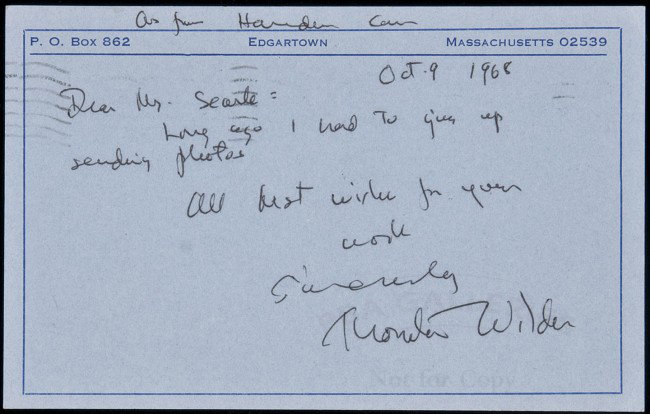 As from Hamden Conn
P. O. Box 862 Edgartown Massachusetts 02539
Oct. 9 1968
Dear Mr. Searle:
Long ago I had to give up
sending photos
All best wishes for your
work
Sincerely
Thornton Wilder
Not for Copy